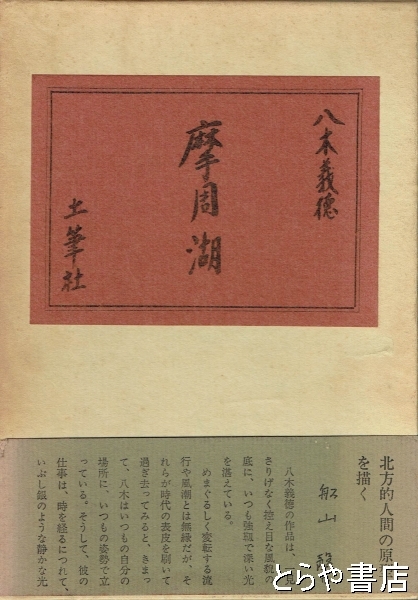 八木義徳
摩周湖
土筆社
北方的人間の原
を描く
船山
八木義徳の作品は、一見
さりげなく控え目な風貌の
底に、いつも強靱で深い光
を湛えている。
めまぐるしく変転する流
行や風潮とは無縁だが、そ
れらが時代の表皮を剝いで
過ぎ去ってみると、きまっ
て、八木はいつもの自分の
場所に、いつもの姿勢で立
っている。そうして、彼の
仕事は、時を経るにつれて、
いぶし銀のような静かな光
とらや書店